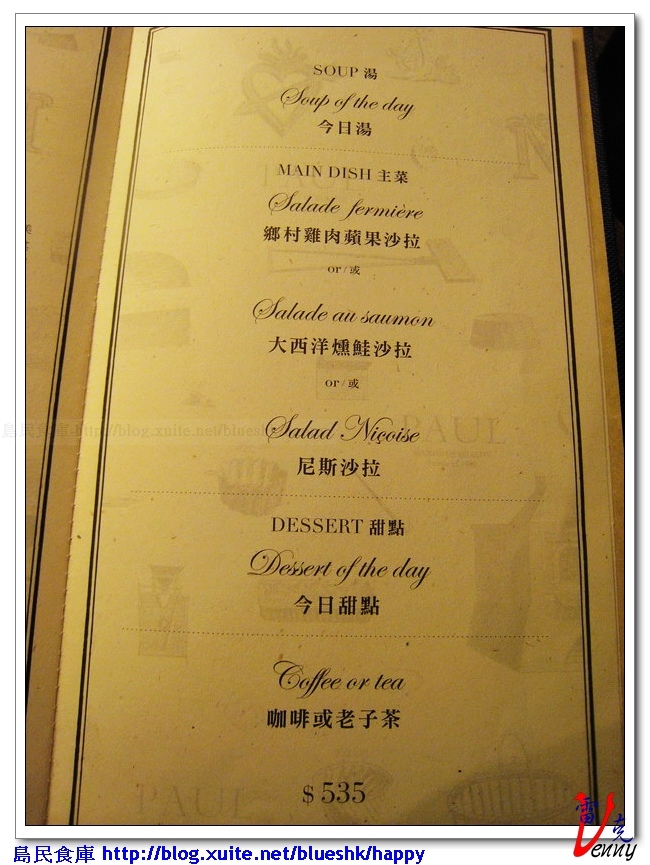 SOUP 湯
Soup of the day
今日湯
MAIN DISH 主菜
Salade fermière
鄉村雞肉蘋果沙拉
or / 或
Salade au saumon
大西洋燻鮭沙拉
or / 或
島民食庫 http://blog.xuite.net/blueshk
Salad Niçoise
PAUL
尼斯沙拉
DESSERT 甜點
Dessert of the day
今日甜點
Coffee or tea
咖啡或老子茶
$ 535
PAUL
雷克
Venny
島民食庫 http://blog.xuite.net/blueshk/happy